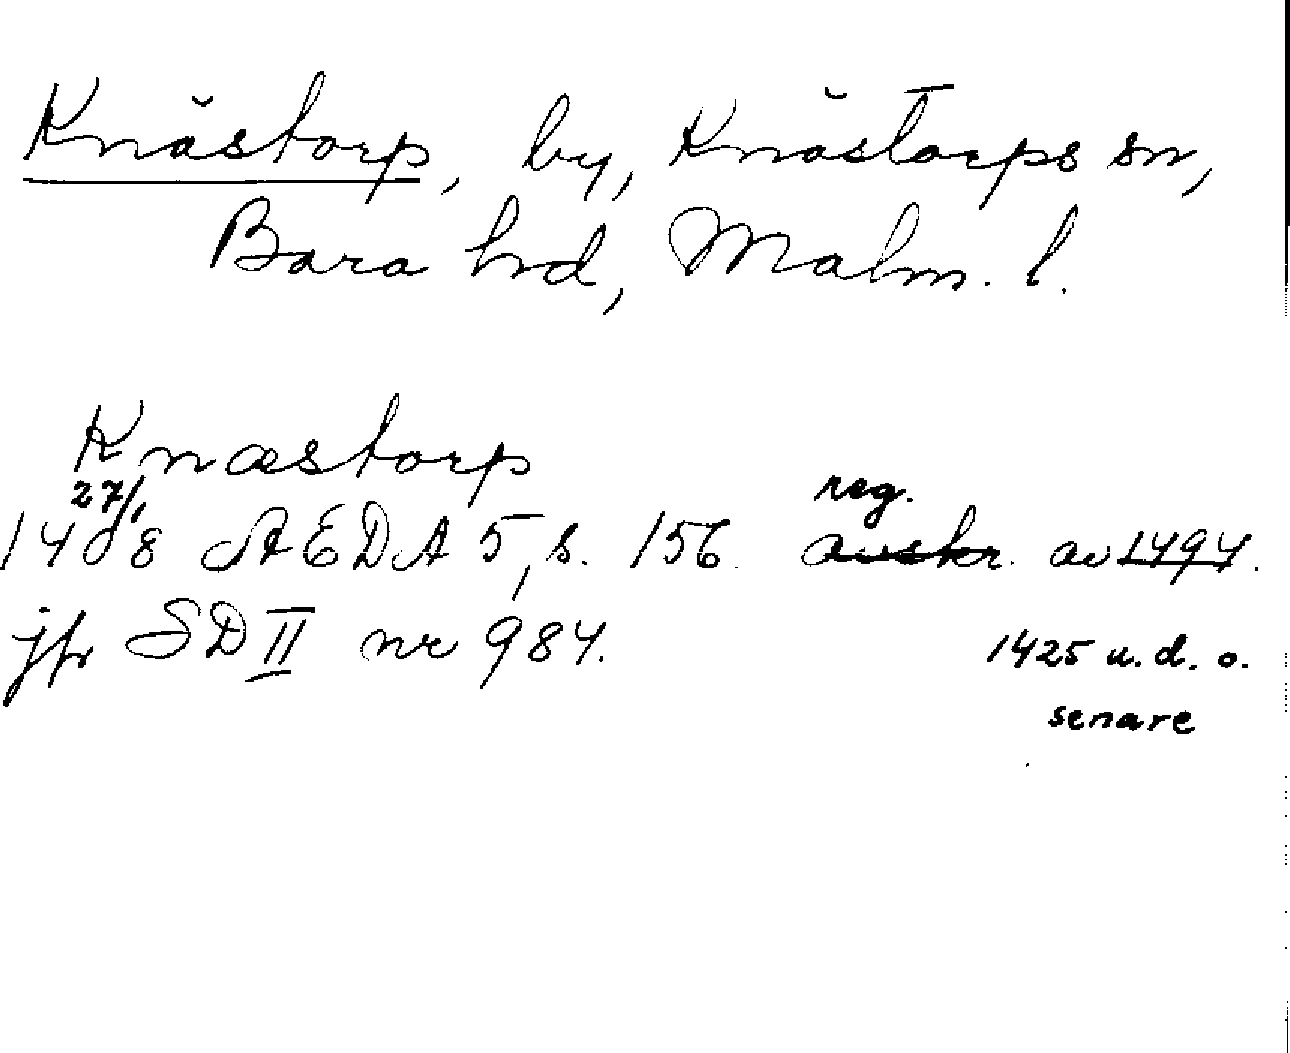 Knästorp, by, Knästorps sn,
Bara hd, Malm. l.
Knæstorp
27/1 reg.
1408 AEDA 5, s. 156. avskr. av 1494.
jfr SD II nr 984. 1425 u.d. o.
senare